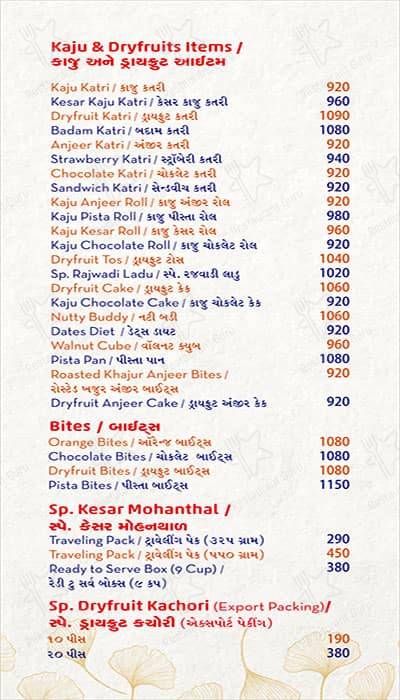 Kaju & Dryfruits Items /
કાજુ અને ડ્રાયફ્રુટ આઈટમ
Kaju Katri / કાજુ કતરી 920
Kesar Kaju Katri / કેસર કાજુ કતરી 960
Dryfruit Katri / ડ્રાયફ્રુટ કતરી 1090
Badam Katri / બદામ કતરી 1080
Anjeer Katri / અંજીર કતરી 920
Strawberry Katri / સ્ટ્રૉબેરી કતરી 940
Chocolate Katri / ચોકલેટ કતરી 920
Sandwich Katri / સેન્ડવીચ કતરી 920
Kaju Anjeer Roll / કાજુ અંજીર રોલ 920
Kaju Pista Roll / કાજુ પીસ્તા રોલ 980
Kaju Kesar Roll / કાજુ કેસર રોલ 960
Kaju Chocolate Roll / કાજુ ચોકલેટ રોલ 920
Dryfruit Tos / ડ્રાયફ્રુટ ટોસ 1040
Sp. Rajwadi Ladu / સ્પે. રજવાડી લાડુ 1020
Dryfruit Cake / ડ્રાયફ્રુટ કેક 1060
Kaju Chocolate Cake / કાજુ ચોકલેટ કેક 920
Nutty Buddy / નટી બડી 1060
Dates Diet / ડેટ્સ ડાયટ 920
Walnut Cube / વૉલનટ ક્યુબ 960
Pista Pan / પીસ્તા પાન 1080
Roasted Khajur Anjeer Bites / 920
રોસ્ટેડ ખજુર અંજીર બાઈટ્સ
Dryfruit Anjeer Cake / ડ્રાયફ્રુટ અંજીર કેક 920
Bites / બાઈટ્સ
Orange Bites / ઑરેન્જ બાઈટ્સ 1080
Chocolate Bites / ચોકલેટ બાઈટ્સ 1080
Dryfruit Bites / ડ્રાયફ્રુટ બાઈટ્સ 1080
Pista Bites / પીસ્તા બાઈટ્સ 1150
Sp. Kesar Mohanthal /
સ્પે. કેસર મોહનથાળ
Traveling Pack / ટ્રાવેલીંગ પેક (૩૨૫ ગ્રામ) 290
Traveling Pack / ટ્રાવેલીંગ પેક (૫૫૦ ગ્રામ) 450
Ready to Serve Box (9 Cup) / 380
રેડી ટુ સર્વ બોક્સ (૯ કપ)
Sp. Dryfruit Kachori (Export Packing)/
સ્પે. ડ્રાયફ્રુટ કચોરી (એક્સપોર્ટ પેકીંગ)
૧૦ પીસ 190
૨૦ પીસ 380